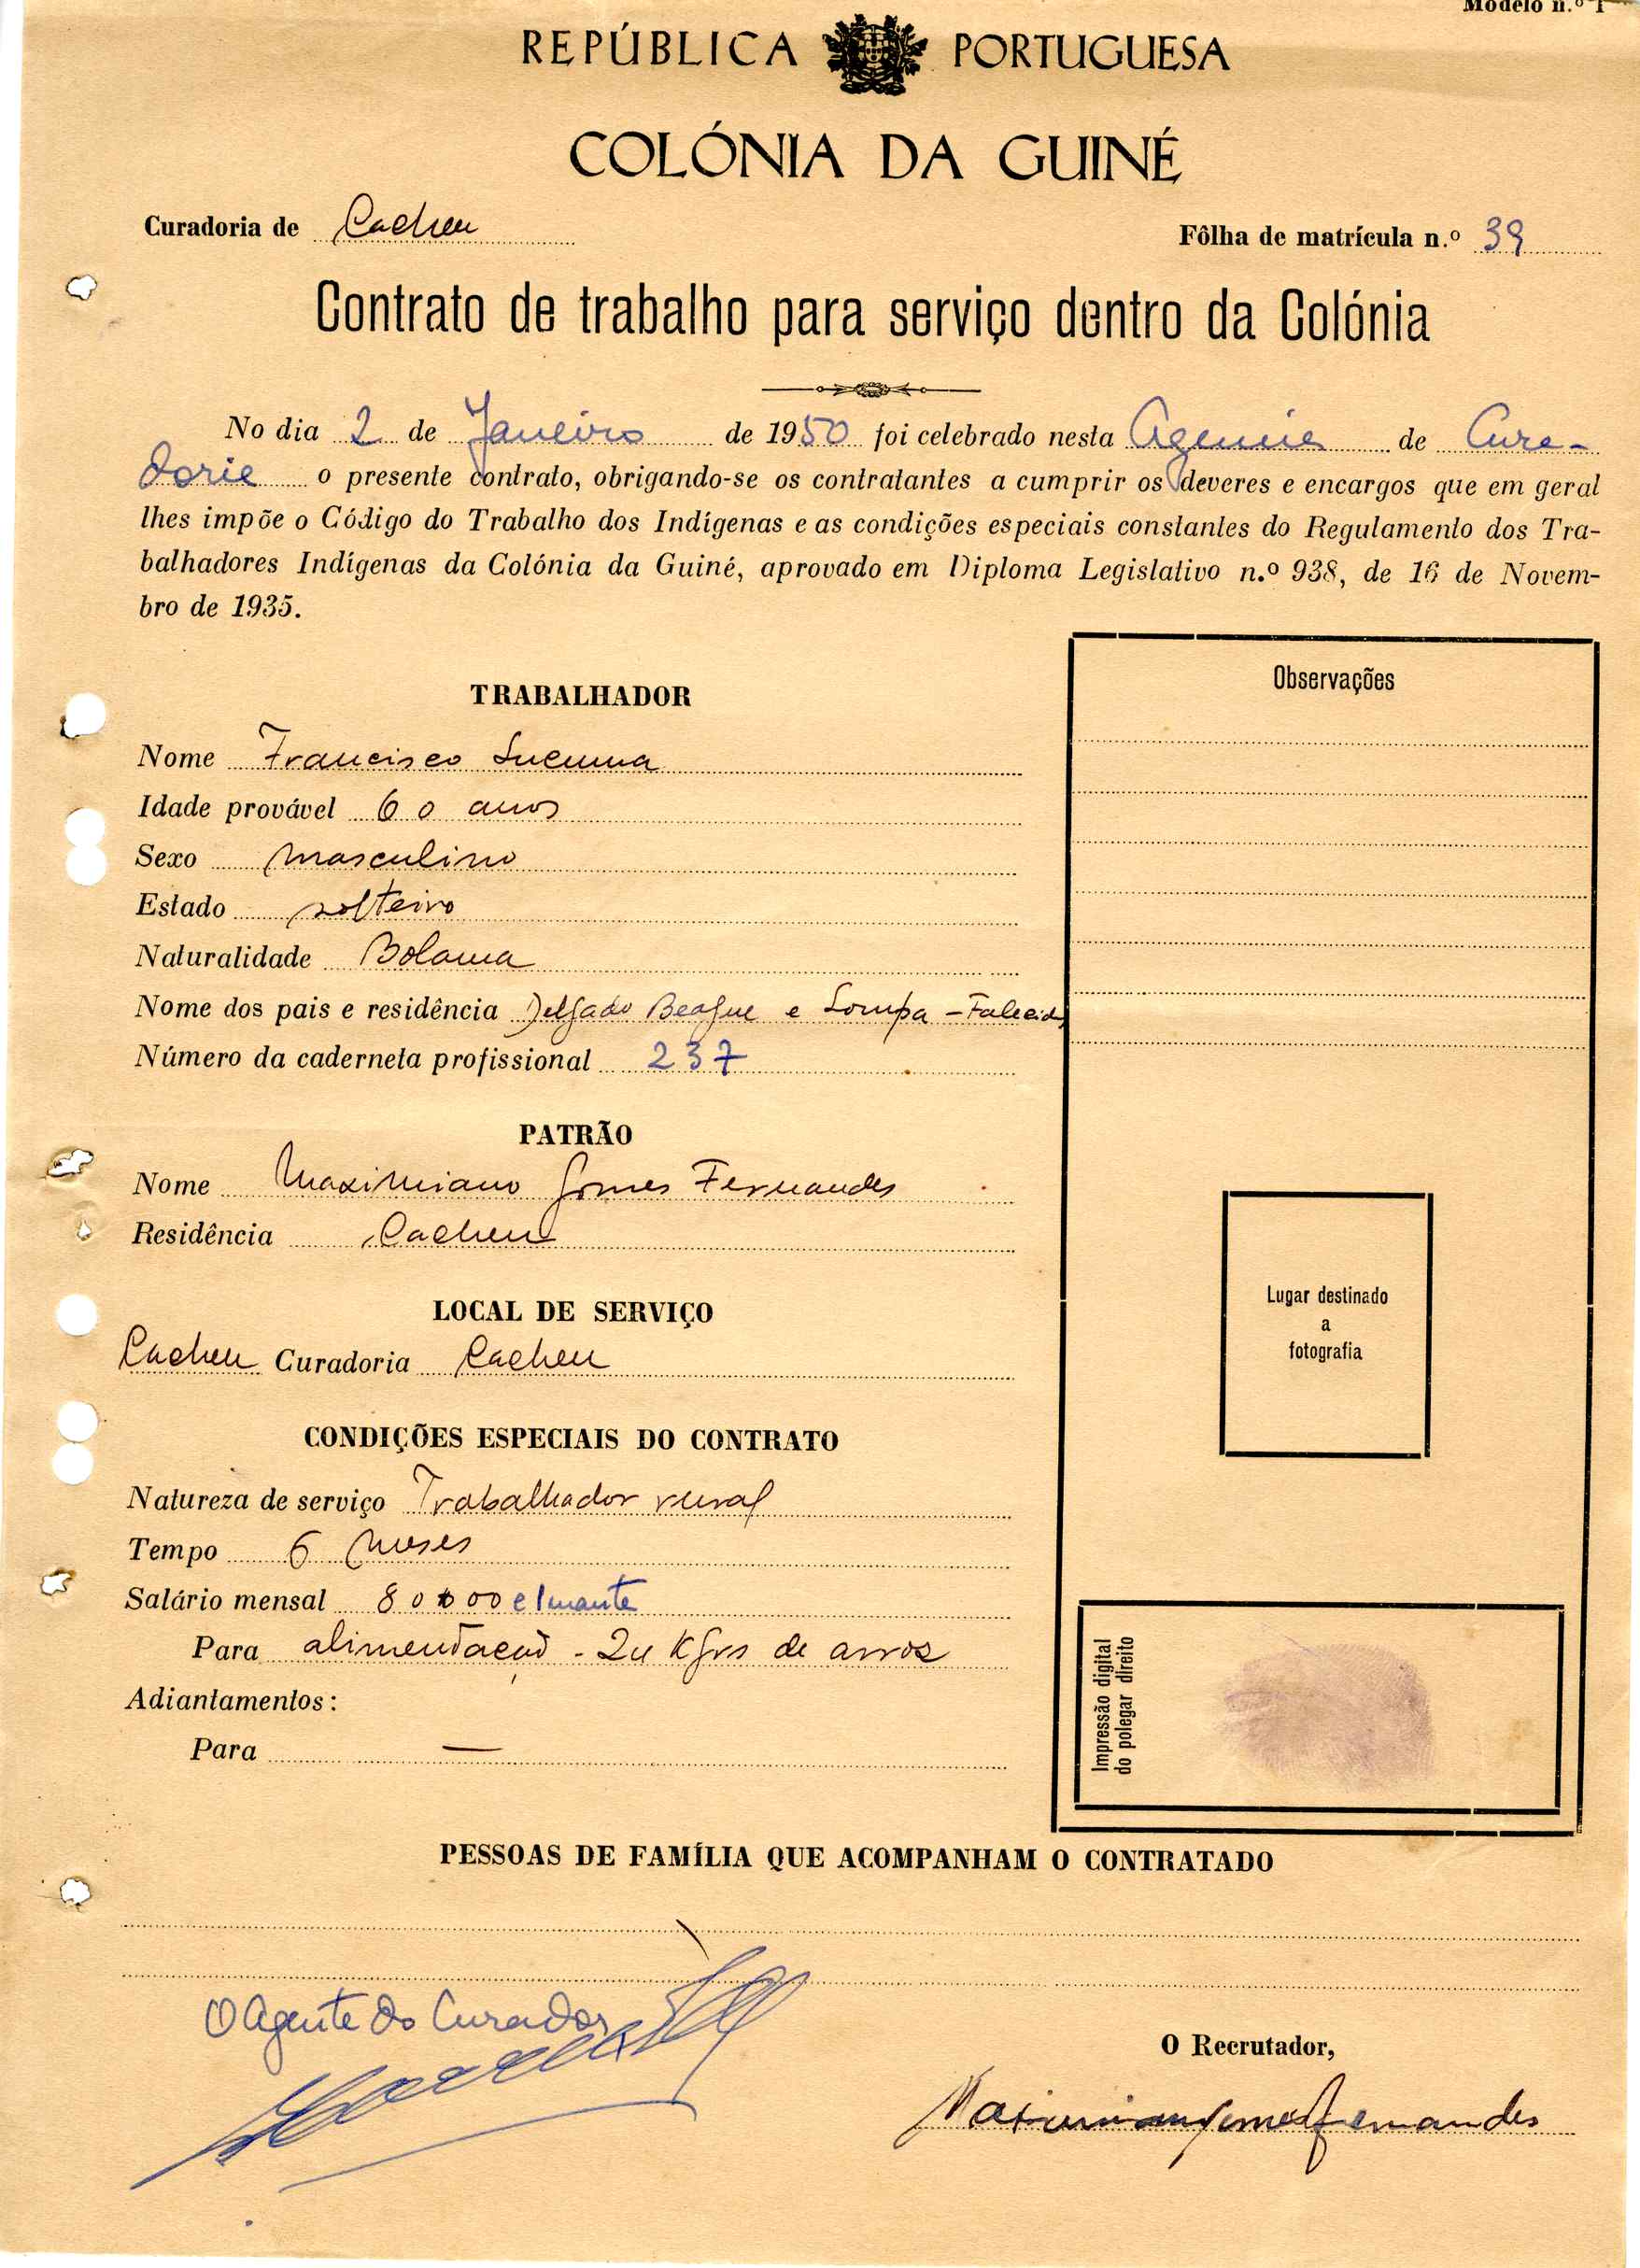 Modelo n.º 1
REPÚBLICA PORTUGUESA
COLÓNIA DA GUINÉ
Curadoria de Cacheu
Fôlha de matrícula n.º 39
Contrato de trabalho para serviço dentro da Colónia
No dia 2 de Janeiro de 1950 foi celebrado nesta Agencia de Cura-
doria o presente contrato, obrigando-se os contratantes a cumprir os deveres e encargos que em geral
lhes impõe o Código do Trabalho dos Indígenas e as condições especiais constantes do Regulamento dos Tra-
balhadores Indígenas da Colónia da Guiné, aprovado em Diploma Legislativo n.º 938, de 16 de Novem-
bro de 1935.
TRABALHADOR
Nome Francisco
Idade provável 60 anos
Sexo masculino
Estado solteiro
Naturalidade Bolama
Nome dos pais e residência Delgado e - Falecidos
Número da caderneta profissional 237
PATRÃO
Nome Maximiano Gomes Fernandes
Residência Cacheu
LOCAL DE SERVIÇO
Cacheu Curadoria Cacheu
CONDIÇÕES ESPECIAIS DO CONTRATO
Natureza de serviço Trabalhador rural
Tempo 6 meses
Salário mensal 80$00
Para alimentação - 24 Kgrs de arroz
Adiantamentos:
Para —
Observações
Lugar destinado
a
fotografia
Impressão digital
do polegar direito
PESSOAS DE FAMÍLIA QUE ACOMPANHAM O CONTRATADO
O Agente do Curador
O Recrutador,
Maximiano Gomes Fernandes